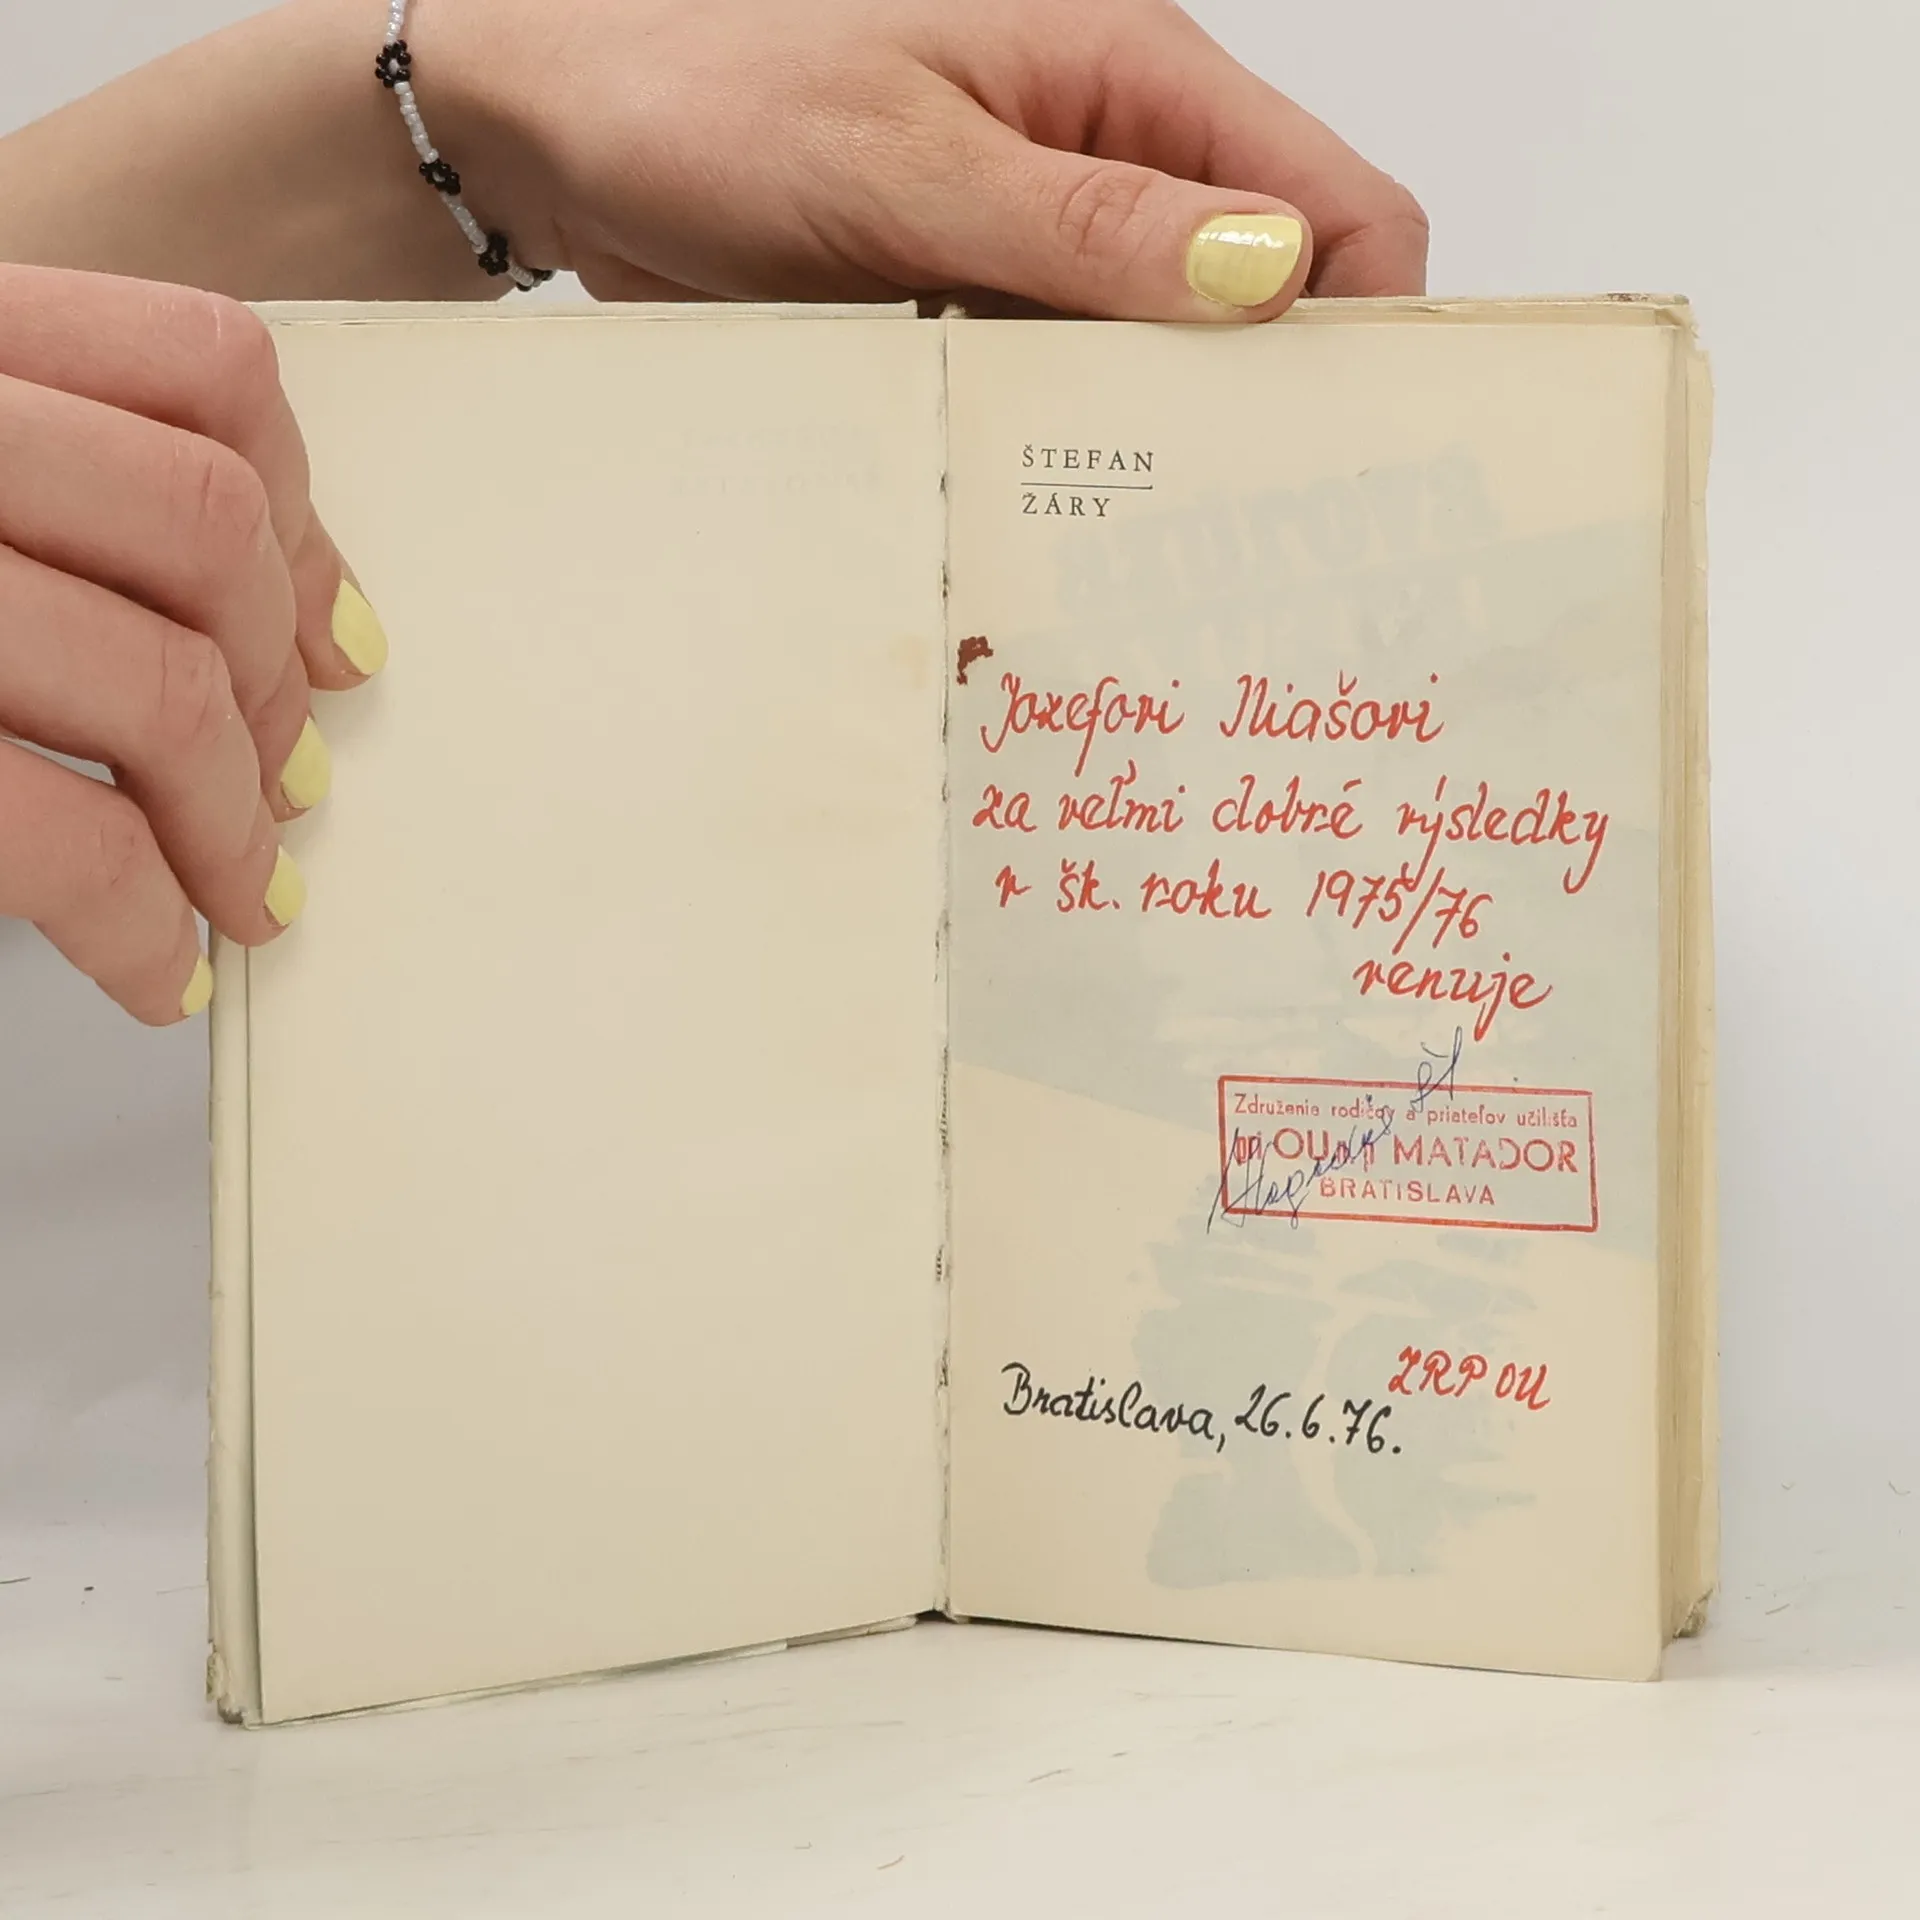 ŠTEFAN
ŽÁRY
Jozefovi Iliašovi
za veľmi dobré výsledky
v šk. roku 1975/76
venuje
Združenie rodičov a priateľov učilišťa
pri OU n.p. MATADOR
BRATISLAVA
ZRP OU
Bratislava, 26.6.76.